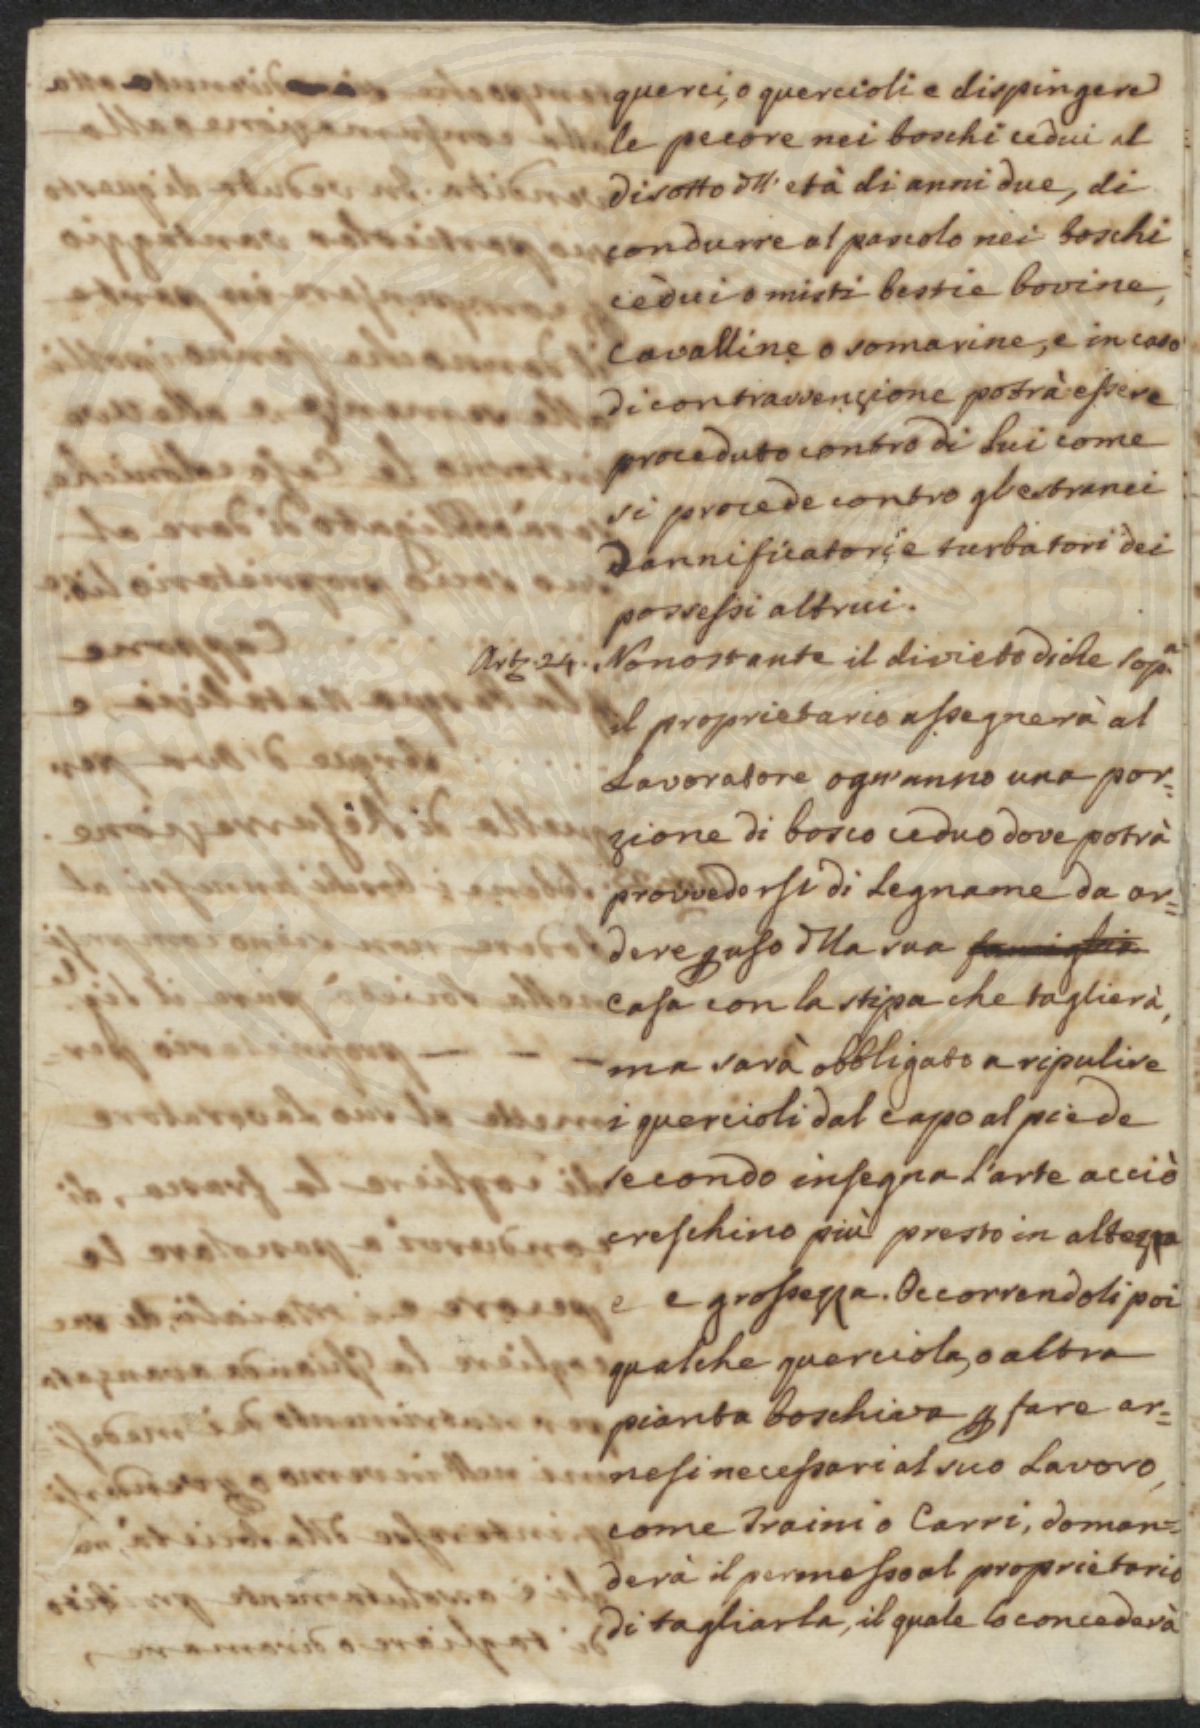 querci, o quercioli e di spingere
le pecore nei boschi cedui al
disotto dll' età di anni due, di
condurre al pascolo nei boschi
cedui o misti bestie bovine,
Cavalline o somarine, e in caso
di contravvenzione potrà essere
proceduto contro di Lui come
si procede contro gl'estranei
Dannificatori, e turbatori dei
possessi altrui.
Art. 24. Nonostante il divieto di che sop.a
il proprietario assegnerà al
Lavoratore ogn'anno una por=
zione di bosco ceduo dove potrà
provvedersi di Legname da ar=
dere p uso dlla sua famiglia
Casa con la stipa che taglierà,
ma sarà obbligato a ripulire
i quercioli dal capo al piede
secondo insegna l'arte acciò
creschino più presto in altezza
e e grossezza. Occorrendoli poi
qualche querciola, o altra
pianta boschiva p fare ar=
nesi necessari al suo Lavoro,
come Traini o Carri, doman=
derà il permesso al proprietario
di tagliarla, il quale lo concederà